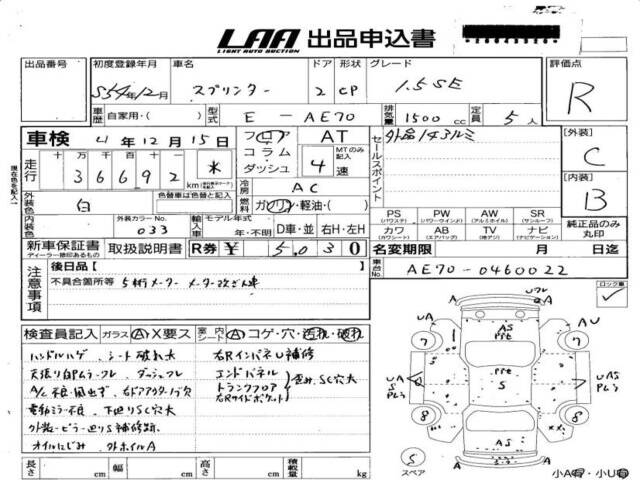 LAA 出品申込書
LIGHT AUTO AUCTION
出品番号 初度登録年月 車名 ドア 形状 グレード 評価点
S54年12月 スプリンター 2 CP 1.5SE R
車歴 自家用・( ) 型式 E - AE70 排気量 1500cc 定員 5人
車検 年12月15日 フロア コラム・ダッシュ AT MTのみ記入 4速
セールスポイント 外品143ルミ
[外装] C
走行 十万 万 千 百 十 一
36692 km
現在色を記入
冷房 AC
[内装] B
外装色 白 色替車は色替と記入
燃料 ガソリン・軽油・( )
内装色 外装カラーNo. 033 輸入車 モデル年式 年・不明 D車・並 右H・左H
PS (パワステ) PW (パワーウインド) AW (アルミホイル) SR (サンルーフ)
カワ (カワシート) AB (エアバッグ) TV (地デジ) ナビ (ナビゲーション)
純正品のみ丸印
新車保証書 ディーラー捺印あるもの 取扱説明書 R券 ¥ 5,030
名変期限 月 日迄
注意事項 後日品[ ]
車台No. AE70-0460022
不具合箇所等 5桁メーター メーター改ざん車
ロック車
検査員記入 ガラス (A)・X要ス 室内シート (A)・コゲ・穴・汚れ・破れ
ハンドルハゲ、シート破れ大 右RインパネU補修
天張り凹ムラ・フレ ダッシュフレ エンドパネル
A/C不良・風出ず、右ドアアウター欠 トランクフロア 歪み、SC穴大
電動ミラー不良、下廻りSC穴大 右Rサイドポケット
外装・ピラー廻りS補修跡
オイルにじみ 外ホイルA
UフレA
UA AU
AS
Pft
7 7
Pft
S
UA
S
8 8
AS
A
S
スペア
長さ cm 幅 cm 高さ cm 積載量 kg 小A有・小U有